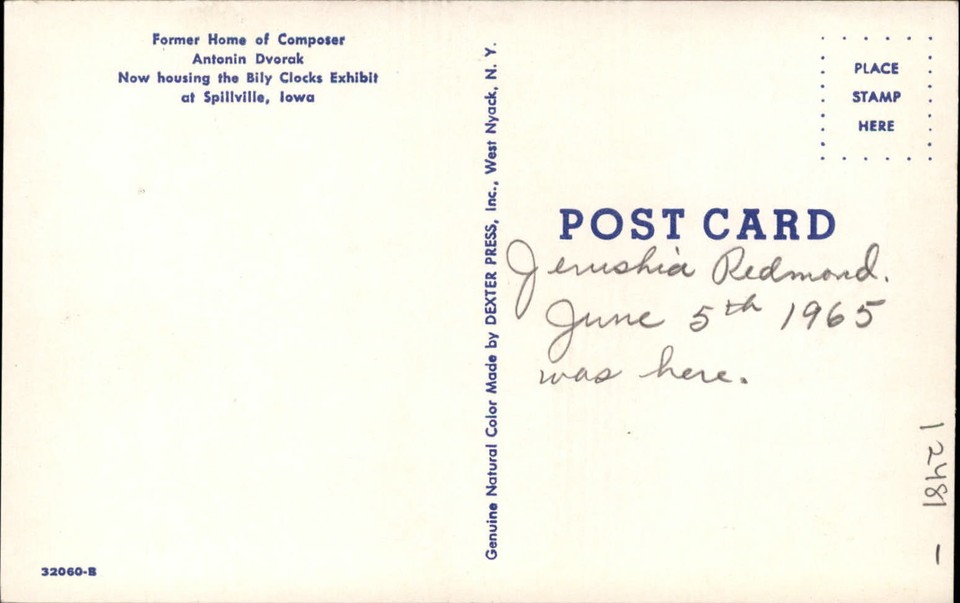 Former Home of Composer
Antonin Dvorak
Now housing the Bily Clocks Exhibit
at Spillville, Iowa
32060-B
Genuine Natural Color Made by DEXTER PRESS, Inc., West Nyack, N. Y.
PLACE
STAMP
HERE
POST CARD
Jerushia Redmond.
June 5th 1965
was here.
12481 -